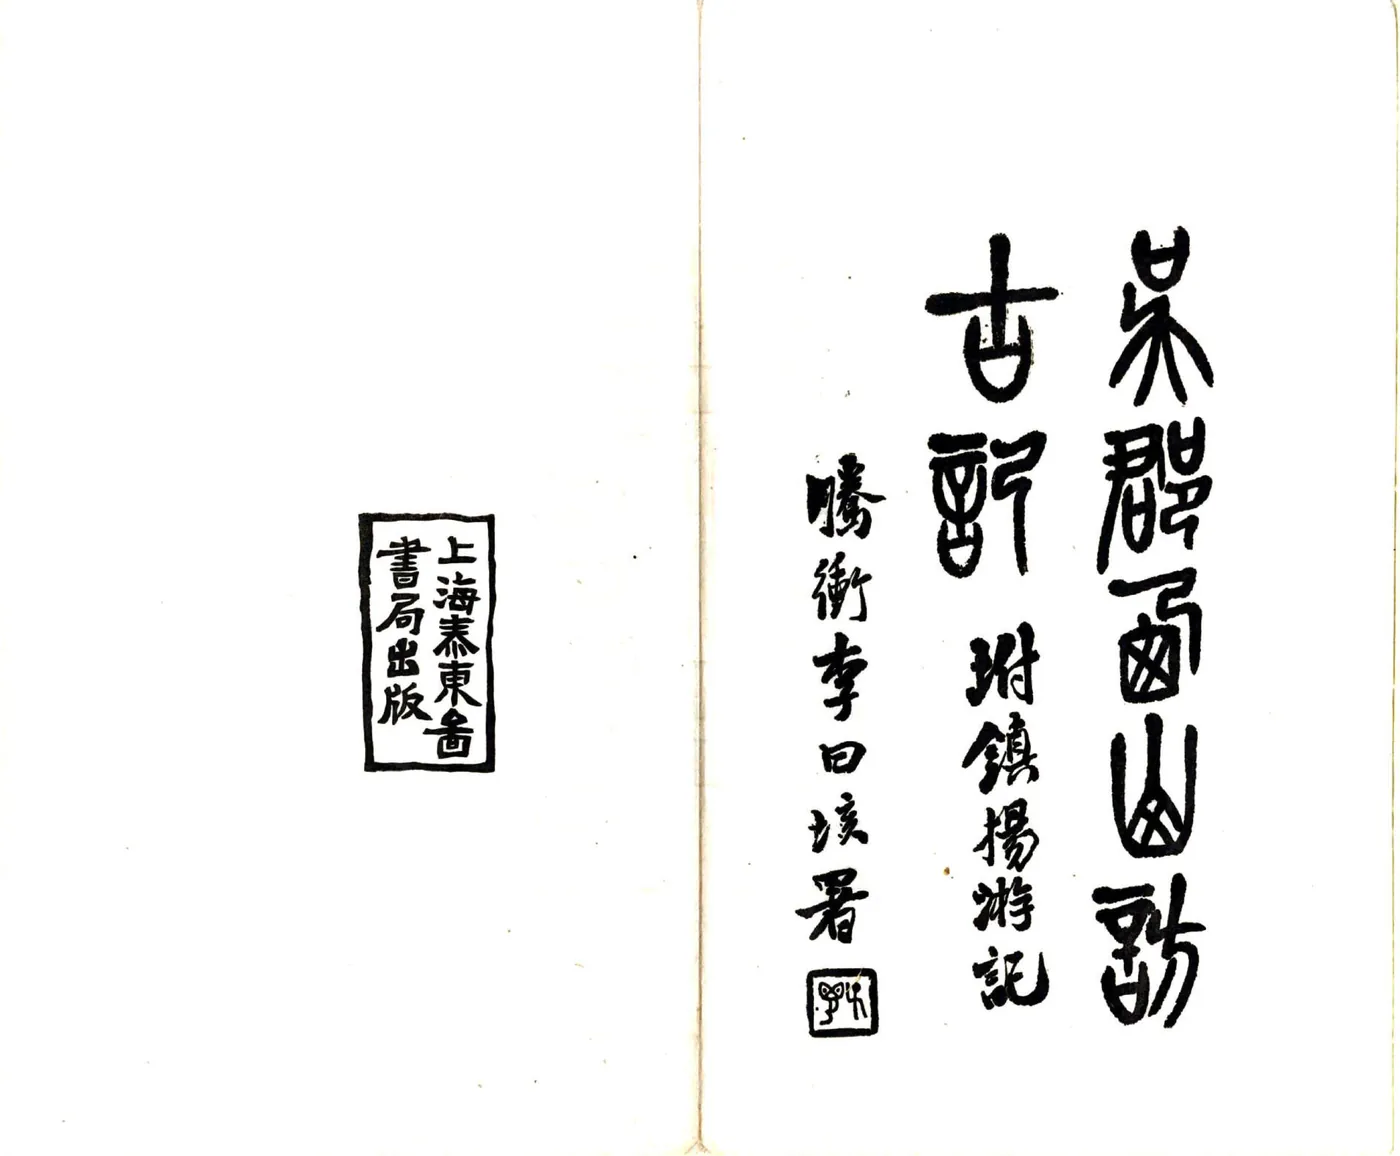 吳郡西山訪
古記
坿鎮揚游記
騰衝李曰垓署
上海泰東圖
書局出版